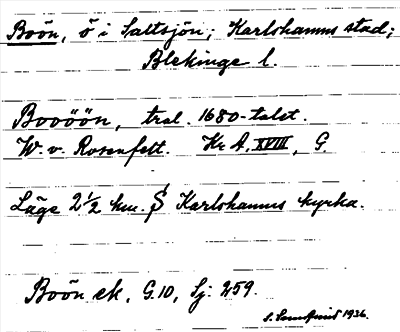 Boön, ö i Saltsjön; Karlshamns stad;
Blekinge l.
Boööön, tral. 1680-talet.
W. v. Rosenfelt. Kr A, XVIII, G.
Läge 2 1/2 km. S Karlshamns kyrka.
Boön ek. G.10, Sj: 259.
1936.